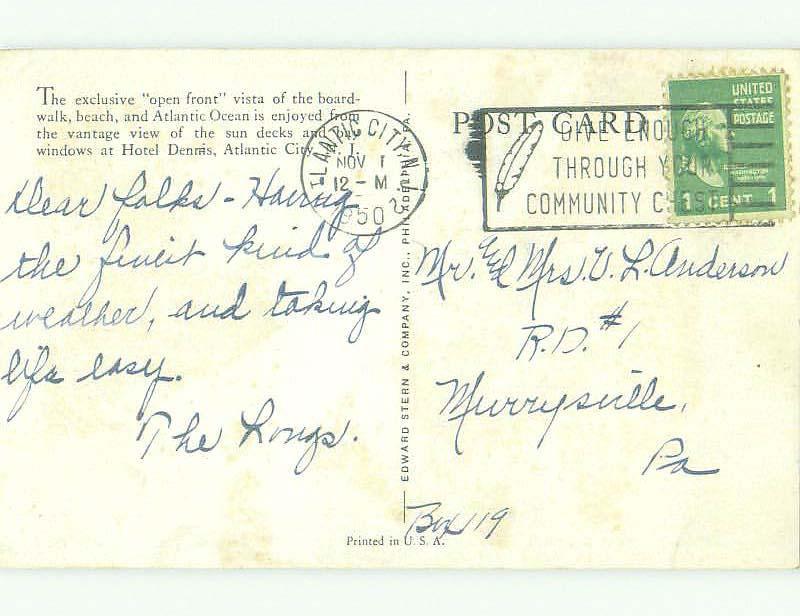 The exclusive "open front" vista of the board-
walk, beach, and Atlantic Ocean is enjoyed from
the vantage view of the sun decks and bay
windows at Hotel Dennis, Atlantic City, N. J.
Dear folks - Having
the finest kind of
weather, and taking
life easy.
The Longs.
ATLANTIC CITY, N.J.
NOV 1
12 - M
1950
EDWARD STERN & COMPANY, INC., PHILADELPHIA, PA.
POST CARD
GIVE ENOUGH
THROUGH YOUR
COMMUNITY CHEST
UNITED
STATES
POSTAGE
WASHINGTON
1 CENT 1
Mr. and Mrs. V. L. Anderson
R.D. #1
Murrysville,
Pa
Box 119
Printed in U. S. A.